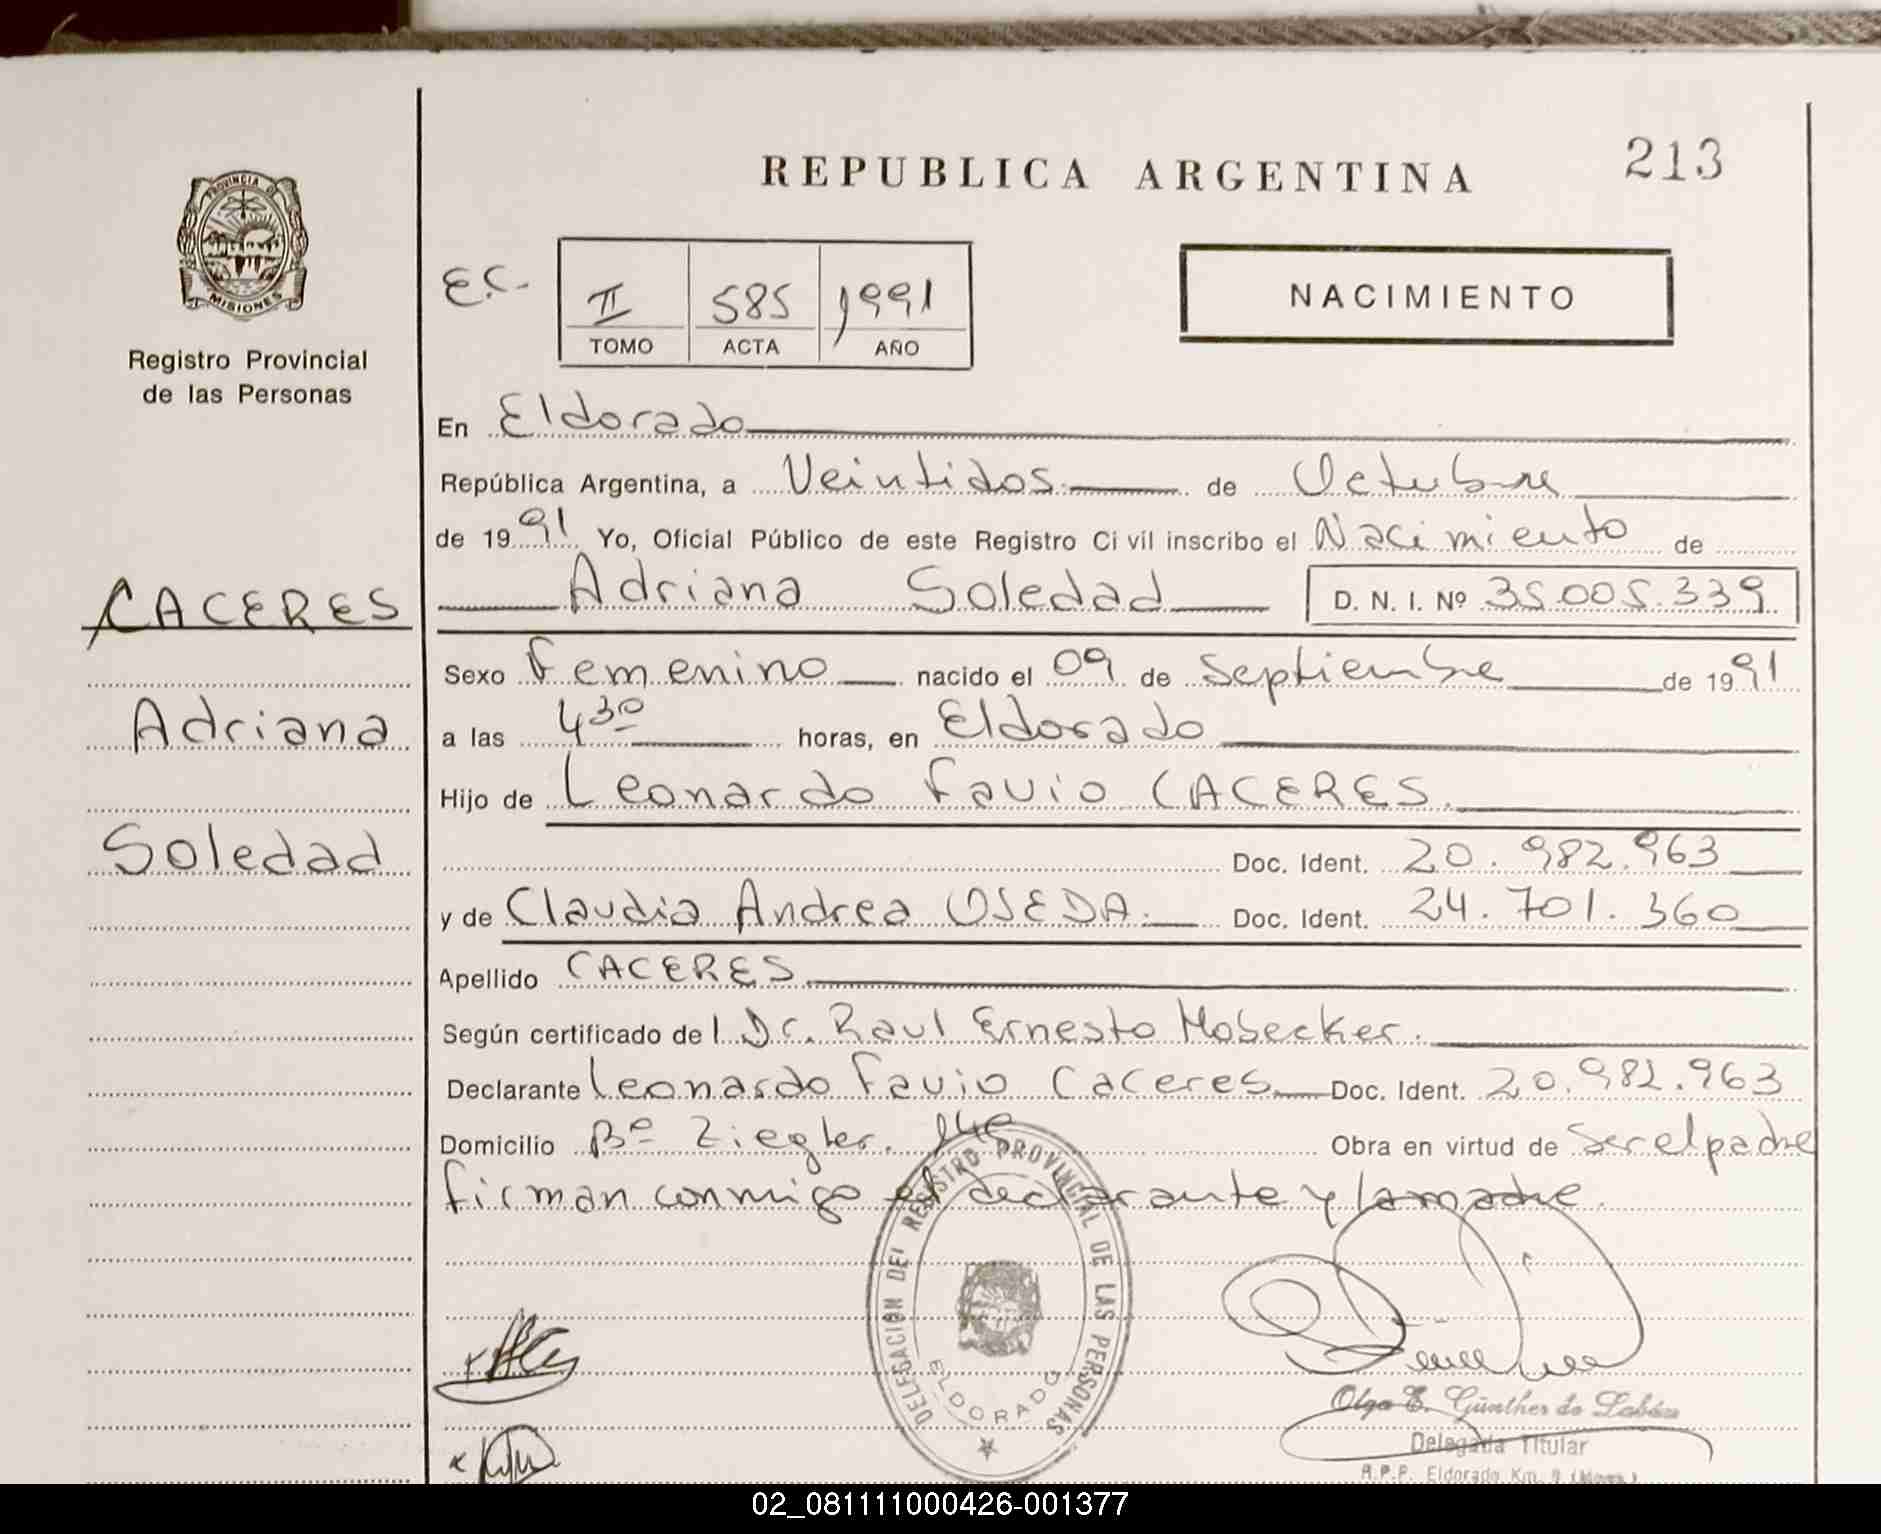 REPUBLICA ARGENTINA
213
PROVINCIA DE
MISIONES
Registro Provincial
de las Personas
E.C.
II 585 1991
TOMO ACTA AÑO
NACIMIENTO
En Eldorado
República Argentina, a Veintidos de Octubre
de 1991 Yo, Oficial Público de este Registro Civil inscribo el Nacimiento de
Adriana Soledad D. N. I. Nº 35.005.339
CACERES
Adriana
Soledad
Sexo Femenino nacido el 09 de Septiembre de 1991
a las 4 30 horas, en Eldorado
Hijo de Leonardo Favio CACERES.
Doc. Ident. 20.982.963
y de Claudia Andrea OJEDA. Doc. Ident. 24.701.360
Apellido CACERES
Según certificado del Dr. Raul Ernesto Hobecker.
Declarante Leonardo Favio Caceres Doc. Ident. 20.982.963
Domicilio Bº Ziegler. Obra en virtud de ser el padre
firman conmigo el declarante y la madre.
DELEGACION DEL REGISTRO PROVINCIAL DE LAS PERSONAS
ELDORADO
Olga E. Günther de
Delegada Titular
R.P.P. Eldorado Km. 9
02_081111000426-001377